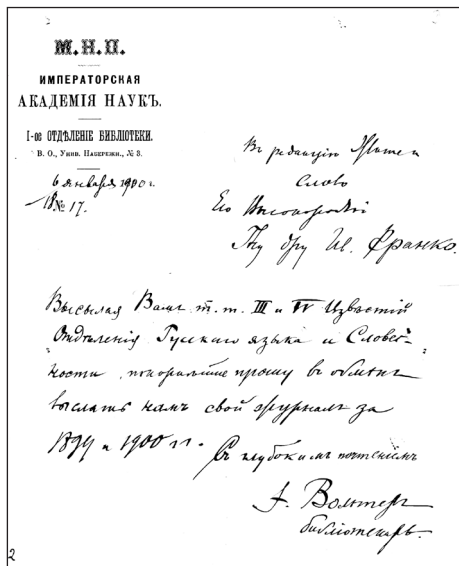 М. Н. П.
ИМПЕРАТОРСКАЯ
АКАДЕМІЯ НАУКЪ.
I-ое ОТДѢЛЕНІЕ БИБЛІОТЕКИ.
В. О., Унив. Набережн., № 3.
6 января 1900 г.
№ 17.
Въ редакцію
Слово
Его Высокородію
Гну дру Ив. Франко.
Высылая Вамъ т. т. III и IV Извѣстій
Отдѣленія Русскаго языка и Словес-
ности, покорнѣйше прошу въ обмѣнъ
выслать намъ свой журналъ за
1899 и 1900 гг. Съ глубокимъ почтеніемъ
Вольтеръ
библіотекарь.
2